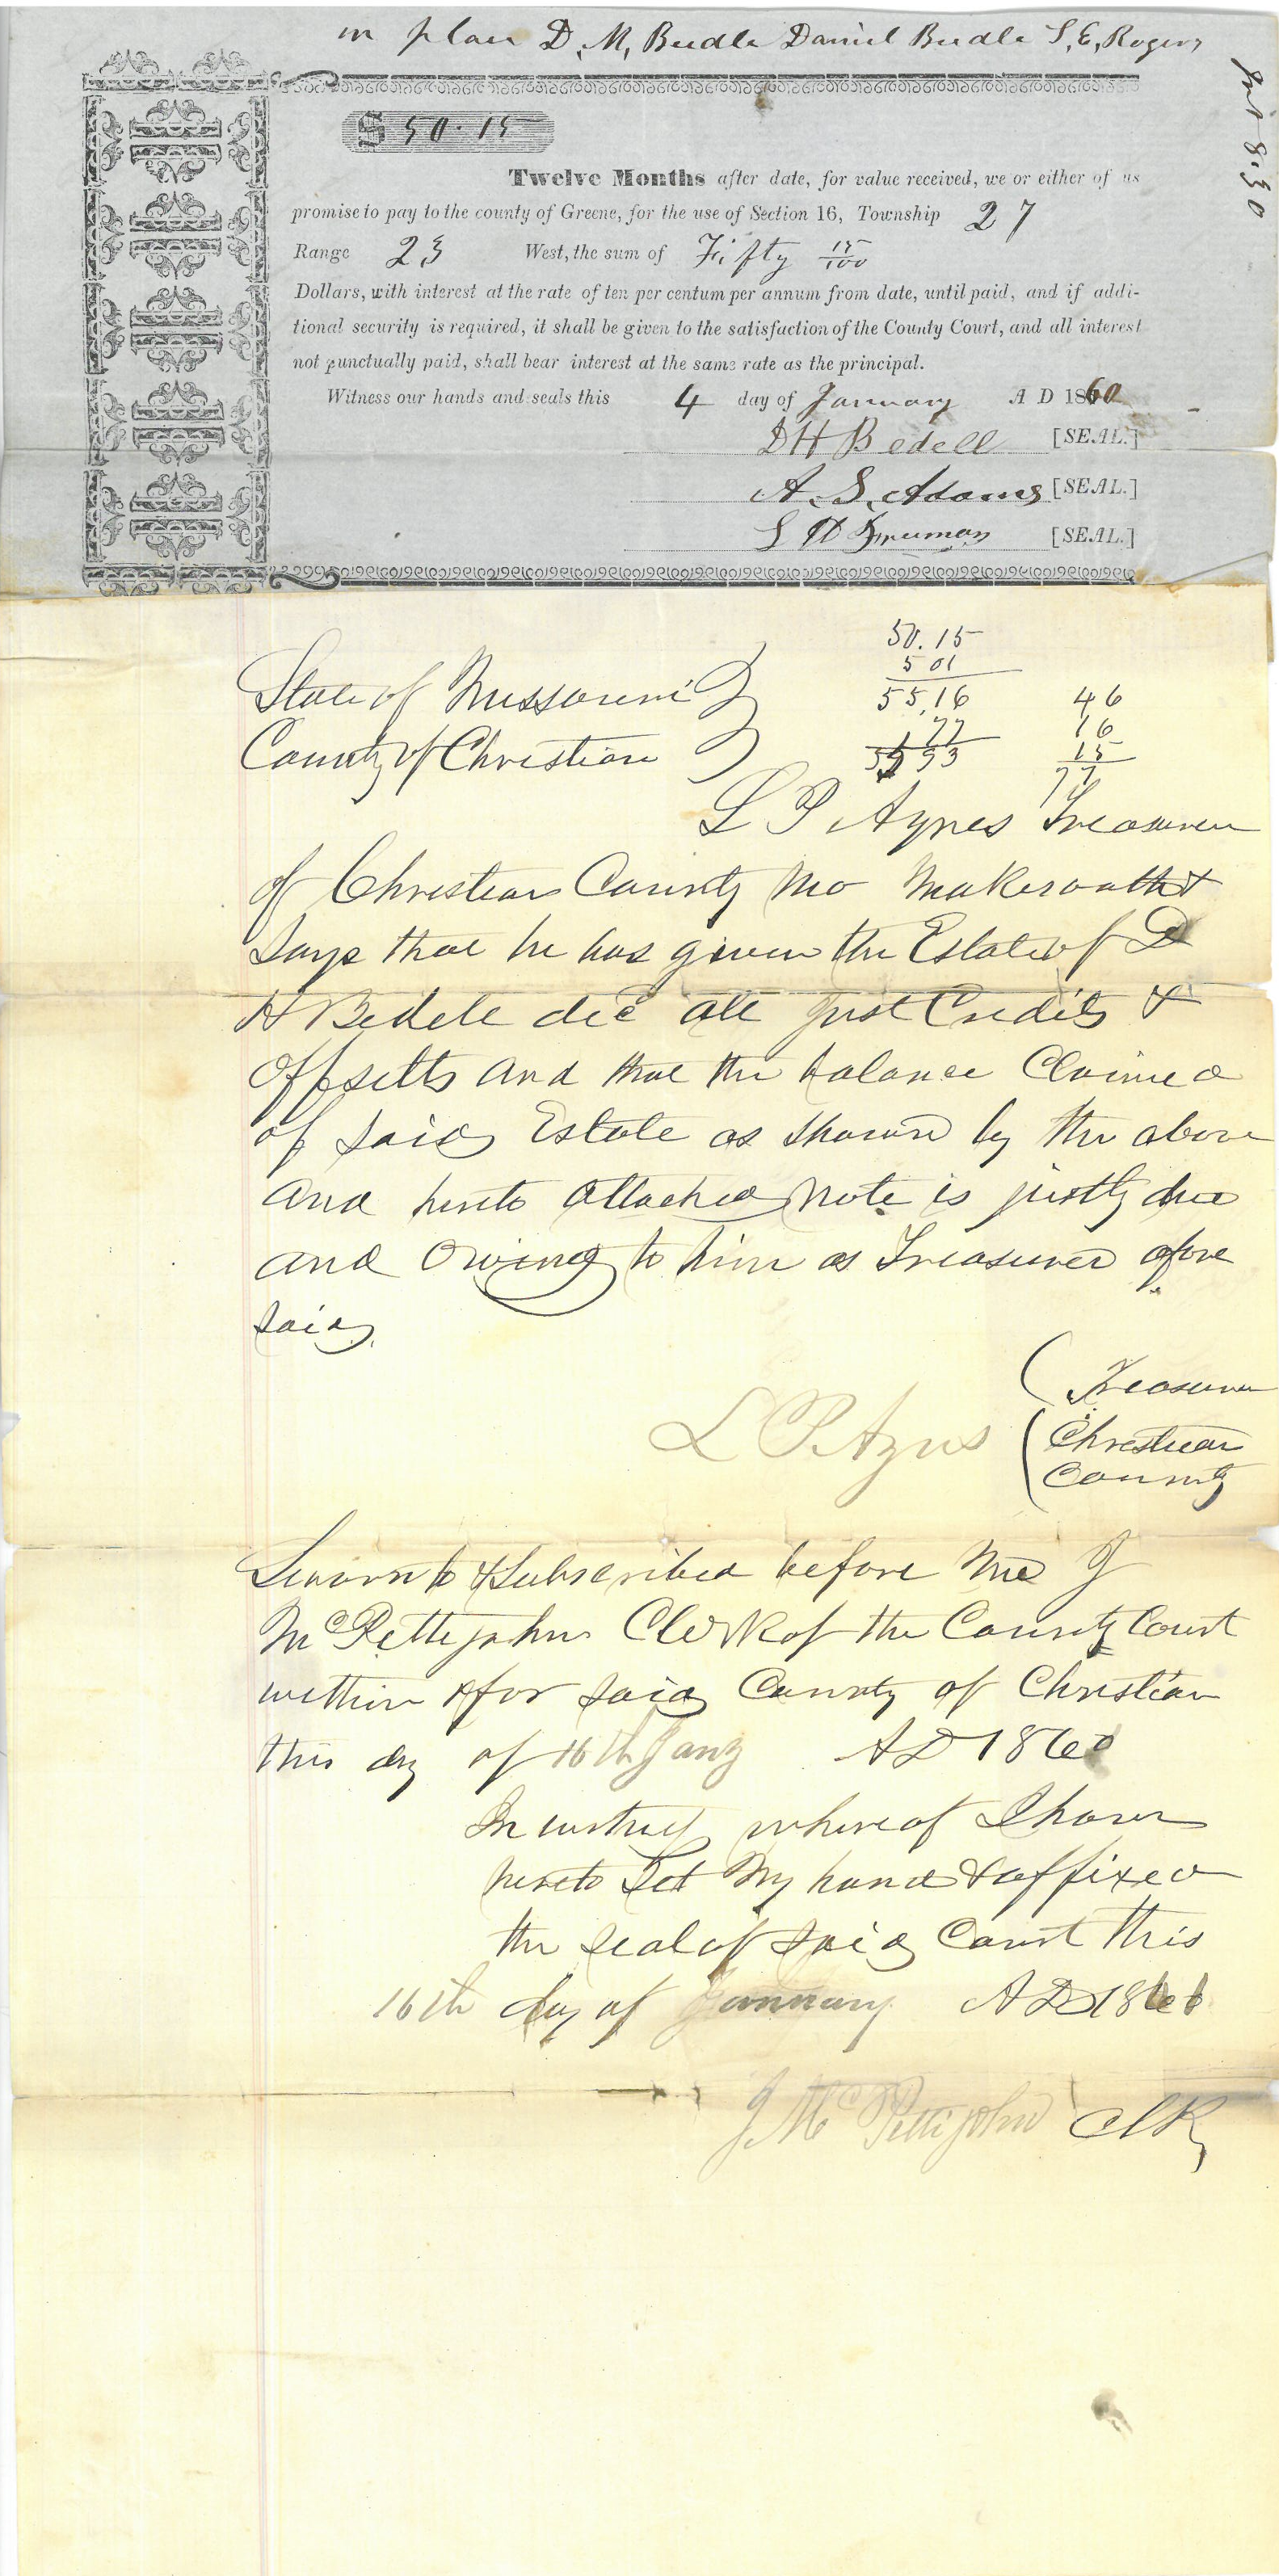 in place D. M, Beedle Daniel Beedle S, E, Rogers
Int 8.30
$ 50.15
Twelve Months after date, for value received, we or either of us
promise to pay to the county of Greene, for the use of Section 16, Township 27
Range 23 West, the sum of Fifty 15/100
Dollars, with interest at the rate of ten per centum per annum from date, until paid, and if addi-
tional security is required, it shall be given to the satisfaction of the County Court, and all interest
not punctually paid, shall bear interest at the same rate as the principal.
Witness our hands and seals this 4 day of January A D 1860
D H Bedell [SEAL.]
A. S. Adams [SEAL.]
[SEAL.]
50.15
5 01
State of Missouri 55,16 46
77 16
County of Christian 55 93 15
77
L P Aynes Treasurer
of Christian County Mo Makes oath &
Says that he has given the Estate of D
H Bedell dec all just Credits &
offsetts and that the balance Claimed
of said Estate as shown by the above
and hereto attached note is justly due
and owing to him as Treasurer afore
said
Treasurer
L P Ayres Christian
County
Sworn to & Subscribed before me J
McPettijohn Clerk of the County Court
within & for said County of Christian
this dy of 16th Jany AD 186
In witness whereof I have
hereto Set My hand & affixed
the seal of said Court this
16th day of January AD 186
J McPettijohn Clk